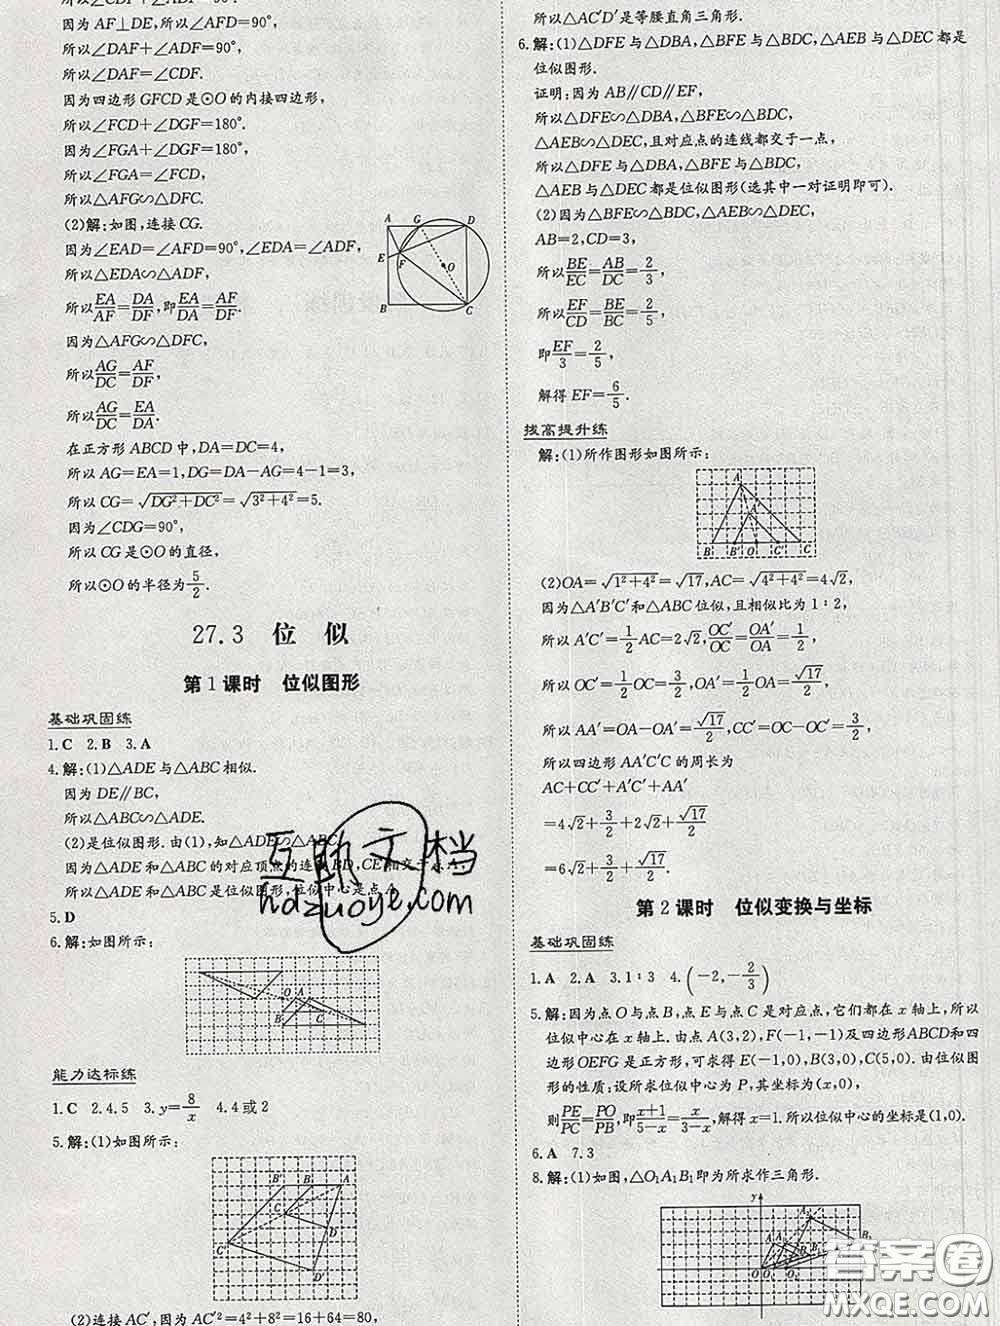 因为 AF⊥DE,所以∠AFD=90°,
所以∠DAF+∠ADF=90°,
所以∠DAF=∠CDF.
因为四边形 GFCD 是⊙O 的内接四边形,
所以∠FCD+∠DGF=180°.
因为∠FGA+∠DGF=180°,
所以∠FGA=∠FCD,
所以△AFG∽△DFC.
(2)解:如图,连接 CG.
因为∠EAD=∠AFD=90°,∠EDA=∠ADF,
所以△EDA∽△ADF.
所以EA/AF=DA/DF,即EA/DA=AF/DF.
因为△AFG∽△DFC,
所以AG/DC=AF/DF,
所以AG/DC=EA/DA.
在正方形 ABCD 中,DA=DC=4,
所以 AG=EA=1,DG=DA-AG=4-1=3,
所以 CG=√(DG²+DC²)=√(3²+4²)=5.
因为∠CDG=90°,
所以 CG 是⊙O 的直径,
所以⊙O 的半径为5/2.
A G D
E F O
B C
27.3 位 似
第 1 课时 位似图形
基础巩固练
1.C 2.B 3.A
4.解:(1)△ADE 与△ABC 相似.
因为 DE∥BC,
所以△ABC∽△ADE.
(2)是位似图形.由(1),知△ADE∽△ABC.
因为△ADE 和△ABC 的对应顶点的连线 BD,CE 相交于点 A,
所以△ADE 和△ABC 是位似图形,位似中心是点 A.
5.D
6.解:如图所示:
O A
B C
能力达标练
1.C 2.4.5 3.y=8/x 4.4 或 2
5.解:(1)如图所示:
B′ B A
C
D
C′
D′
(2)连接 AC′,因为 AC′²=4²+8²=16+64=80,
所以△AC′D′是等腰直角三角形.
6.解:(1)△DFE 与△DBA,△BFE 与△BDC,△AEB 与△DEC 都是
位似图形.
证明:因为 AB∥CD∥EF,
所以△DFE∽△DBA,△BFE∽△BDC,
△AEB∽△DEC,且对应点的连线都交于一点,
所以△DFE 与△DBA,△BFE 与△BDC,
△AEB 与△DEC 都是位似图形(选其中一对证明即可).
(2)因为△BFE∽△BDC,△AEB∽△DEC,
AB=2,CD=3,
所以BE/EC=AB/DC=2/3,
所以EF/CD=BE/BC=2/5,
即EF/3=2/5,
解得 EF=6/5.
拔高提升练
解:(1)所作图形如图所示:
A
A′
B B′ O C′ C
(2)OA=√(1²+4²)=√17,AC=√(4²+4²)=4√2,
因为△A′B′C′和△ABC 位似,且相似比为 1∶2,
所以 A′C′=1/2AC=2√2,OC′/OC=OA′/OA=1/2,
所以 OC′=1/2OC=3/2,OA′=1/2OA=√17/2,
所以 AA′=OA-OA′=√17/2,CC′=OC-OC′=3/2,
所以四边形 AA′C′C 的周长为
AC+CC′+A′C′+AA′
=4√2+3/2+2√2+√17/2
=6√2+3/2+√17/2.
第 2 课时 位似变换与坐标
基础巩固练
1.A 2.A 3.1∶3 4.(-2,-2/3)
5.解:因为点 O 与点 B,点 E 与点 C 是对应点,它们都在 x 轴上,所以
位似中心在 x 轴上.由点 A(3,2),F(-1,-1)及四边形ABCD和四
边形 OEFG 是正方形,可求得 E(-1,0),B(3,0),C(5,0).由位似图
形的性质:设所求位似中心为 P,其坐标为(x,0),
则PE/PC=PO/PB,即(x+1)/(5-x)=x/(3-x),解得 x=1.所以位似中心的坐标是(1,0).
6.A 7.3
8.解:(1)如图,△O₁A₁B₁即为所求作三角形.
互助文档
hdzuoye.com
答案圈
MXQE.COM